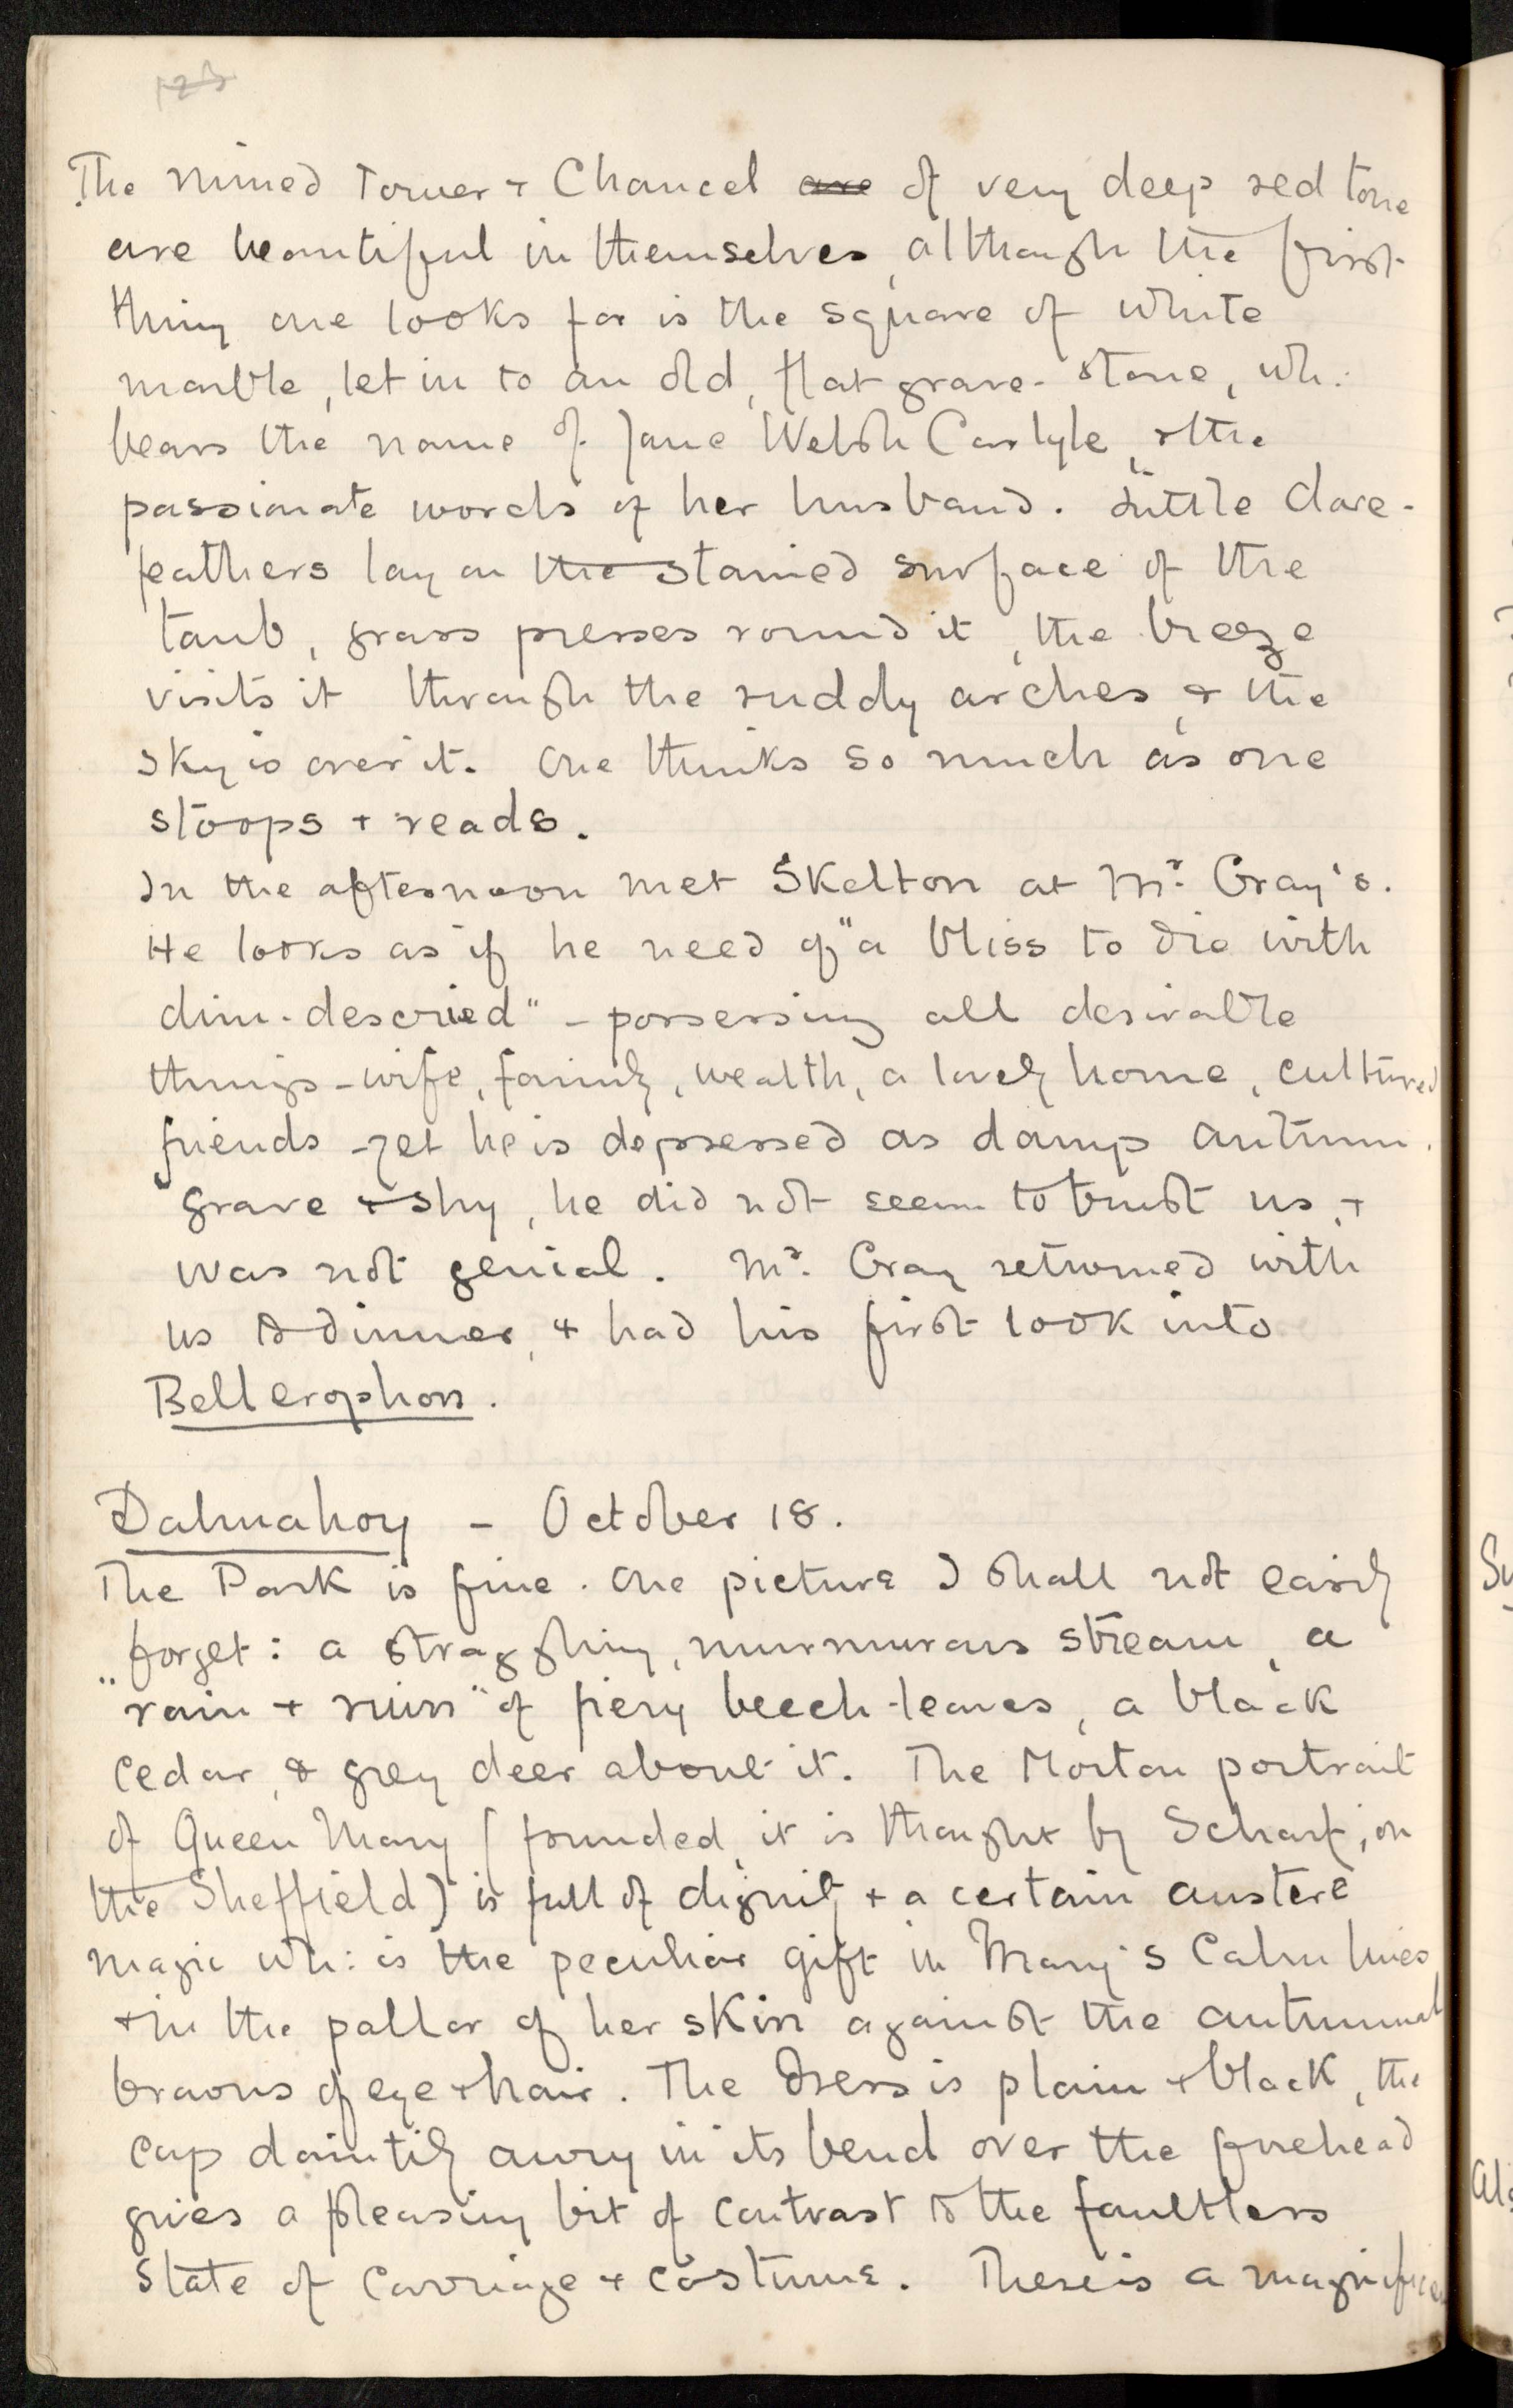 The ruined Tower + Chancel are of very deep red tone
are beautiful in themselves, although the first
thing one looks for is the square of white
marble, let in to an old, flat grave-stone, wh:
bears the name of Jane Welsh Carlyle, & the
passionate words of her husband. Little dove-
feathers lay on the stained surface of the
tomb, grass presses round it, the breeze
visits it through the ruddy arches, & the
sky is over it. One thinks so much as one
stoops + reads.
In the afternoon met Skelton at Mr. Gray's.
He looks as if he need of "a bliss to die with
dim-descried" - possessing all desirable
things - wife, family, wealth, a lovely home, cultured
friends - yet he is depressed as damp autumn.
Grave + shy, he did not seem to trust us, +
was not genial. Mr. Gray returned with
us to dinner, & had his first look into
Bellerophon.
Dalmahoy - October 18.
The Park is fine. One picture I shall not easily
forget: a straggling, murmurous stream, a
"rain + ruin" of fiery beech-leaves, a black
cedar, & grey deer about it. The Morton portrait
of Queen Mary (founded, it is thought by Scharf, on
the Sheffield) is full of dignity + a certain austere
magic wh: is the peculiar gift in Mary's calm lines
+ in the pallor of her skin against the autumnal
browns of eye + hair. The dress is plain + black, the
cap daintily awry in its bend over the forehead
gives a pleasing bit of contrast to the faultless
state of carriage + costume. There is a magnificen